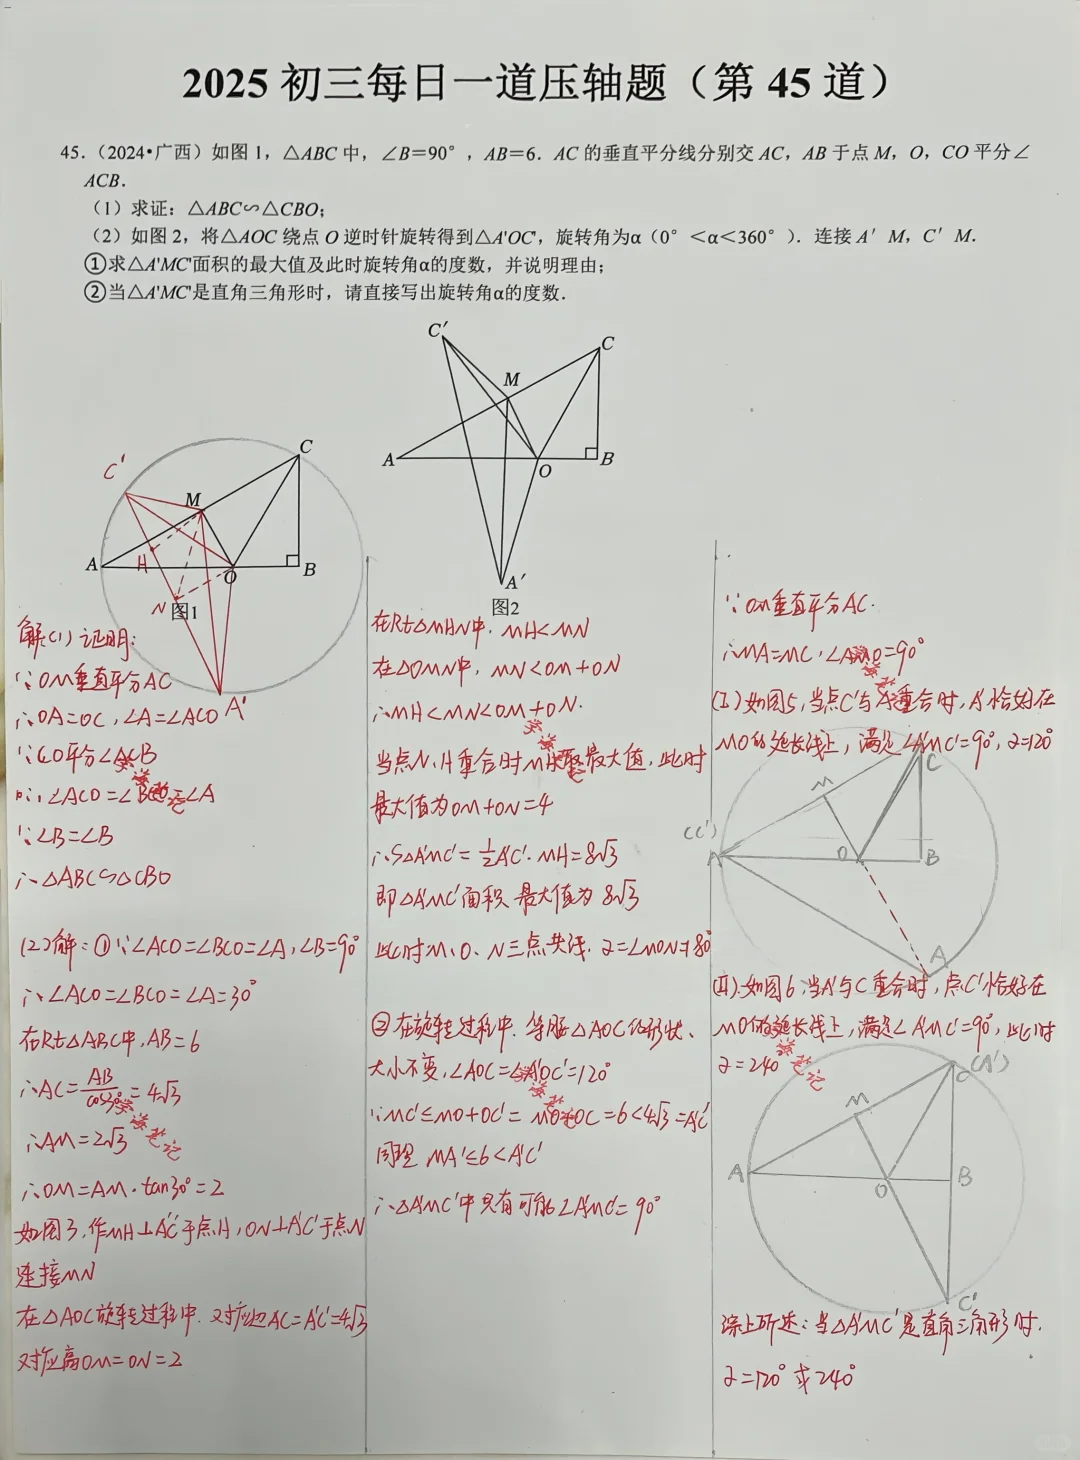 2025 初三每日一道压轴题（第 45 道）
45.（2024•广西）如图 1，△ABC 中，∠B=90°，AB=6．AC 的垂直平分线分别交 AC，AB 于点 M，O，CO 平分∠
ACB．
（1）求证：△ABC∽△CBO；
（2）如图 2，将△AOC 绕点 O 逆时针旋转得到△A'OC'，旋转角为α（0°＜α＜360°）．连接 A′ M，C′ M．
①求△A'MC'面积的最大值及此时旋转角α的度数，并说明理由；
②当△A'MC'是直角三角形时，请直接写出旋转角α的度数．
C'
M
C
A
O
B
A'
图2
C'
M
C
A
H
O
B
N
图1
A'
解(1) 证明:
∵OM垂直平分AC
∴OA=OC，∠A=∠ACO
∵CO平分∠ACB
∴∠ACO=∠BCO=∠A
∵∠B=∠B
∴△ABC∽△CBO
(2)解：①∵∠ACO=∠BCO=∠A，∠B=90°
∴∠ACO=∠BCO=∠A=30°
在Rt△ABC中，AB=6
∴AC=AB/cos30°=4√3
∴AM=2√3
∴OM=AM·tan30°=2
如图3，作MH⊥A'C'于点H，ON⊥A'C'于点N
连接MN
在△AOC旋转过程中，对应边AC=A'C'=4√3
对应高OM=ON=2
在Rt△MHN中，MH<MN
在△OMN中，MN<OM+ON
∴MH<MN<OM+ON.
当点N、H重合时MH取最大值，此时
最大值为OM+ON=4
∴S△A'MC'=½A'C'·MH=8√3
即△A'MC'面积最大值为8√3
此时M、O、N三点共线，α=∠MON=180°
②在旋转过程中，等腰△AOC的形状、
大小不变，∠AOC=∠A'OC'=120°
∵MC'≤MO+OC'=MO+OC=6<4√3=A'C'
同理 MA'≤6<A'C'
∴△A'MC'中只有可能∠A'MC'=90°
∵OM垂直平分AC.
∴MA=MC，∠AMO=90°
(I)如图5，当点C'与A重合时，A'恰好在
MO的延长线上，满足∠A'MC'=90°，α=120°
C
M
(C')
A
O
B
A
(II).如图6，当A'与C重合时，点C'恰好在
MO的延长线上，满足∠A'MC'=90°，此时
α=240°
C(A')
M
A
O
B
C'
综上所述：当△A'MC'是直角三角形时，
α=120°或240°
学海笔记
学海笔记
学海笔记
学海笔记
学海笔记
学海笔记